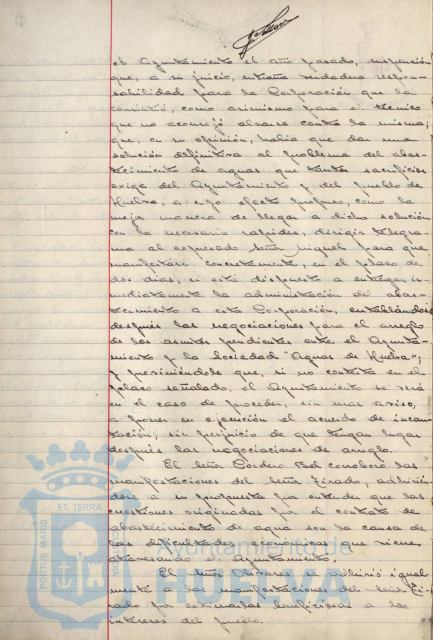 el Ayuntamiento el año pasado, suspensión
que, a su juicio, entraña verdadera respon-
sabilidad para la Corporación que la
consintió, como asimismo para el técnico
que no aconsejó alzarse contra la misma;
que, en su opinión, había que dar una
solución definitiva al problema del abas-
tecimiento de aguas que tantos sacrificios
exige del Ayuntamiento y del pueblo de
Huelva, a cuyo efecto propuso, como la
mejor manera de llegar a dicha solución
con la necesaria rapidez, dirigir telegra-
ma al expresado señor Miguel para que
manifestase concretamente, en el plazo de
dos días, si está dispuesto a entregar in-
mediatamente la administración del abas-
tecimiento a esta Corporación, entablándose
después las negociaciones para el arreglo
de los asuntos pendientes entre el Ayunta-
miento y la Sociedad "Aguas de Huelva";
y previniéndole que, si no contesta en el
plazo señalado, el Ayuntamiento se verá
en el caso de proceder, sin mas aviso,
a poner en ejecución el acuerdo de incau-
tación, sin perjuicio de que tengan lugar
después las negociaciones de arreglo.
El señor Cordero Bel corroboró las
manifestaciones del señor Tirado, adhirién-
dose a su propuesta por entender que las
cuestiones originadas por el contrato de
abastecimiento de agua son la causa de
las dificultades económicas que viene
atravesando el Ayuntamiento.
El señor se adhirió igual-
mente a las manifestaciones del señor Ti-
rado por estimarlas beneficiosas a los
intereses del pueblo.
PORTUS MARIS ET TERRAE
Ayuntamiento de
HUELVA